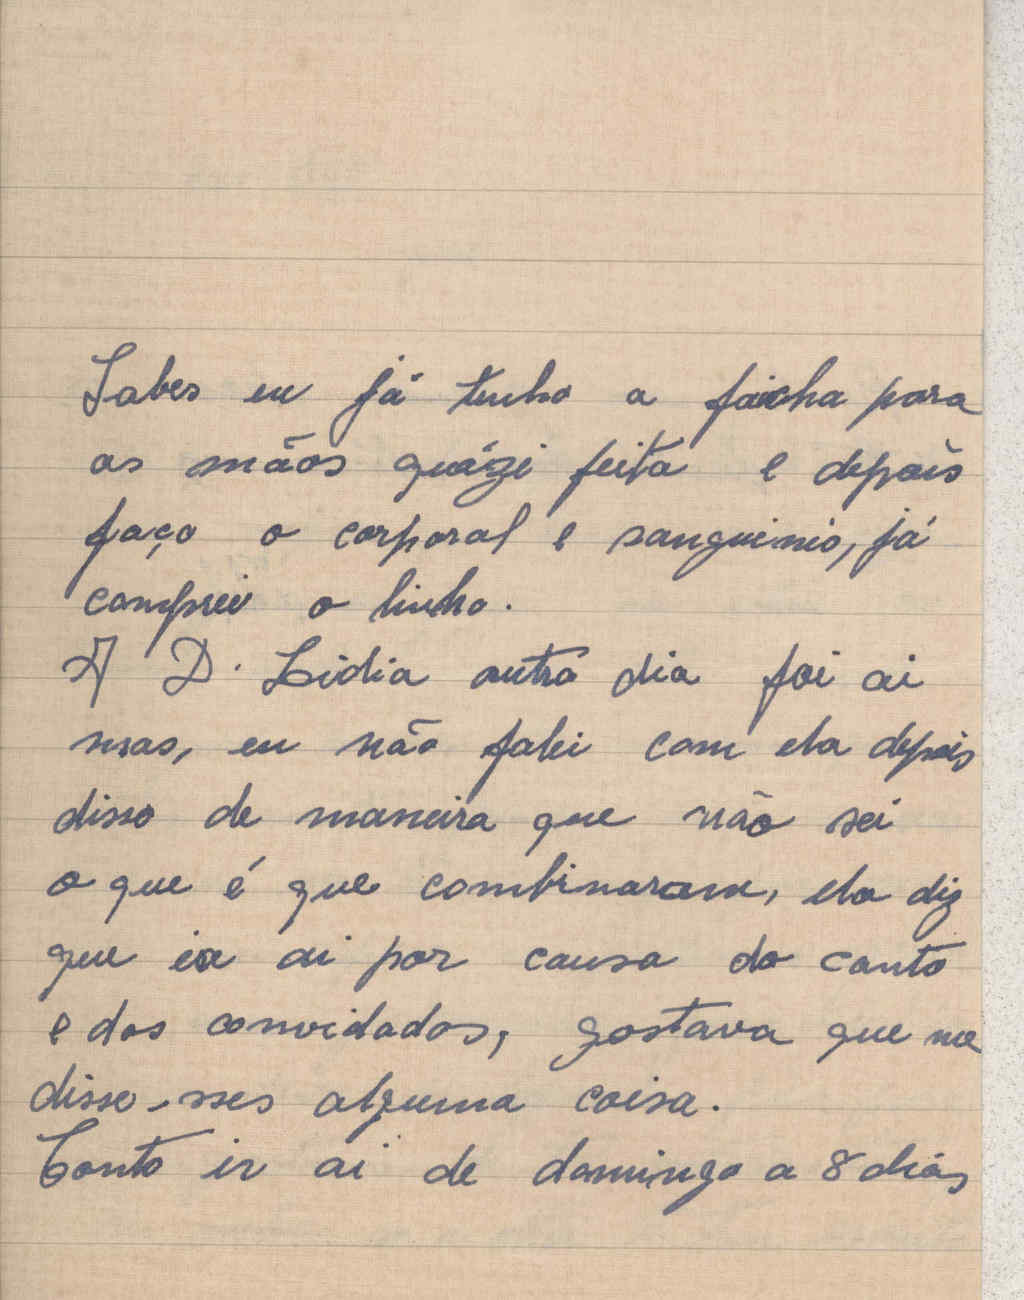 Sabes eu já tenho a faicha para
as mãos quázi feita e depois
faço o corporal e sanguinio, já
comprei o linho.
A D. Lidia outro dia foi ai
mas, eu não falei com ela depois
disso de maneira que não sei
o que é que combinaram, ela diz
que ia ai por causa do canto
e dos convidados, gostava que me
disse-sses alguma coisa.
Conto ir ai de domingo a 8 dias